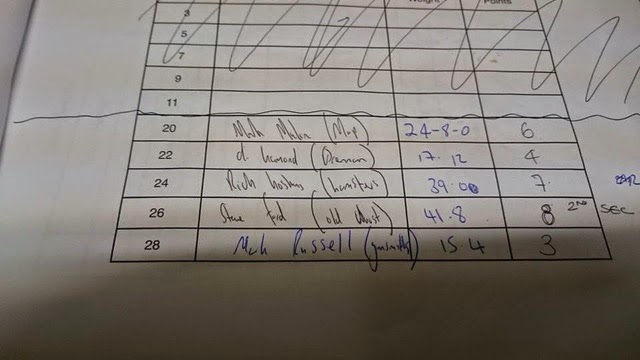 Weight Points
3
5
7
9
11
20 Mark (Map) 24-8-0 6
22 d. hamond (Drennan) 17.12 4
24 Rich (hamiters) 39.00 7.
26 Steve Ford (old Ghost) 41.8 8 2ND SEC
28 Mark Russell 15 4 3